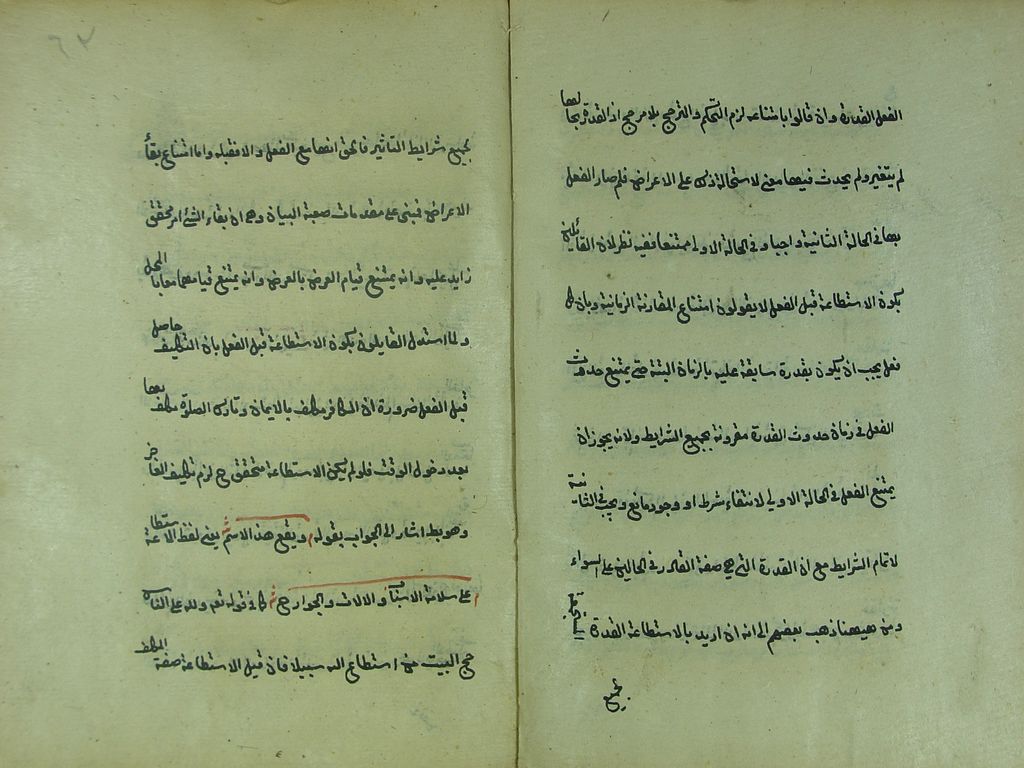 الفعل القدرة وان قالوا بامتناعه لزم التحكم والترجيح بلا مرجح اذ القدرة بحالها
لم يتغير ولم يحدث فيها معنى لاستحالة ذلك على الاعراض فلم صار الفعل
بها فى الحالة الثانية واجبا وفى الحالة الاولى ممتنعا ففيه نظر لان القائلين
بكون الاستطاعة قبل الفعل لا يقولون امتناع المقارنة الزمانية وبان كل
فعل يجب ان يكون بقدرة سابقة عليه بالزمان البتة حتى يمتنع حدوث
الفعل فى زمان حدوث القدرة مقرونة بجميع الشرايط ولانه يجوز ان
يمتنع الفعل فى الحالة الاولى لانتفاء شرط او وجود مانع ويجب فى الثانية
لاتمام الشرايط مع ان القدرة التى هى صفة القادر فى الحالين على السواء
ومن ههنا ذهب بعضهم الى انه ان اريد بالاستطاعة القدرة المستجمعة
بجميع
٦٢
بجميع شرايط التاثير فالحق انها مع الفعل والا فقبله واما امتناع بقاء
الاعراض فمبنى على مقدمات صعبة البيان وهى ان بقاء الشئ امر محقق
زايد عليه وانه يمتنع قيام العرض بالعرض وانه يمتنع قيامهما معا بالمحل
ولما استدل القايلون بكون الاستطاعة قبل الفعل بان التكليف حاصل
قبل الفعل ضرورة ان الكافر مكلف بالايمان وتارك الصلوة مكلف بها
بعد دخول الوقت فلو لم يكن الاستطاعة متحقق ح لزم تكليف العاجز
وهو بط اشار الى الجواب بقوله م ويقع هذا الاسم ش يعنى لفظ الاستطاعة
م على سلامة الاسباب والالات والجوارح ش كما فى قوله تعه ولله على الناس
حج البيت من استطاع اليه سبيلا فان قيل الاستطاعة صفة المكلف